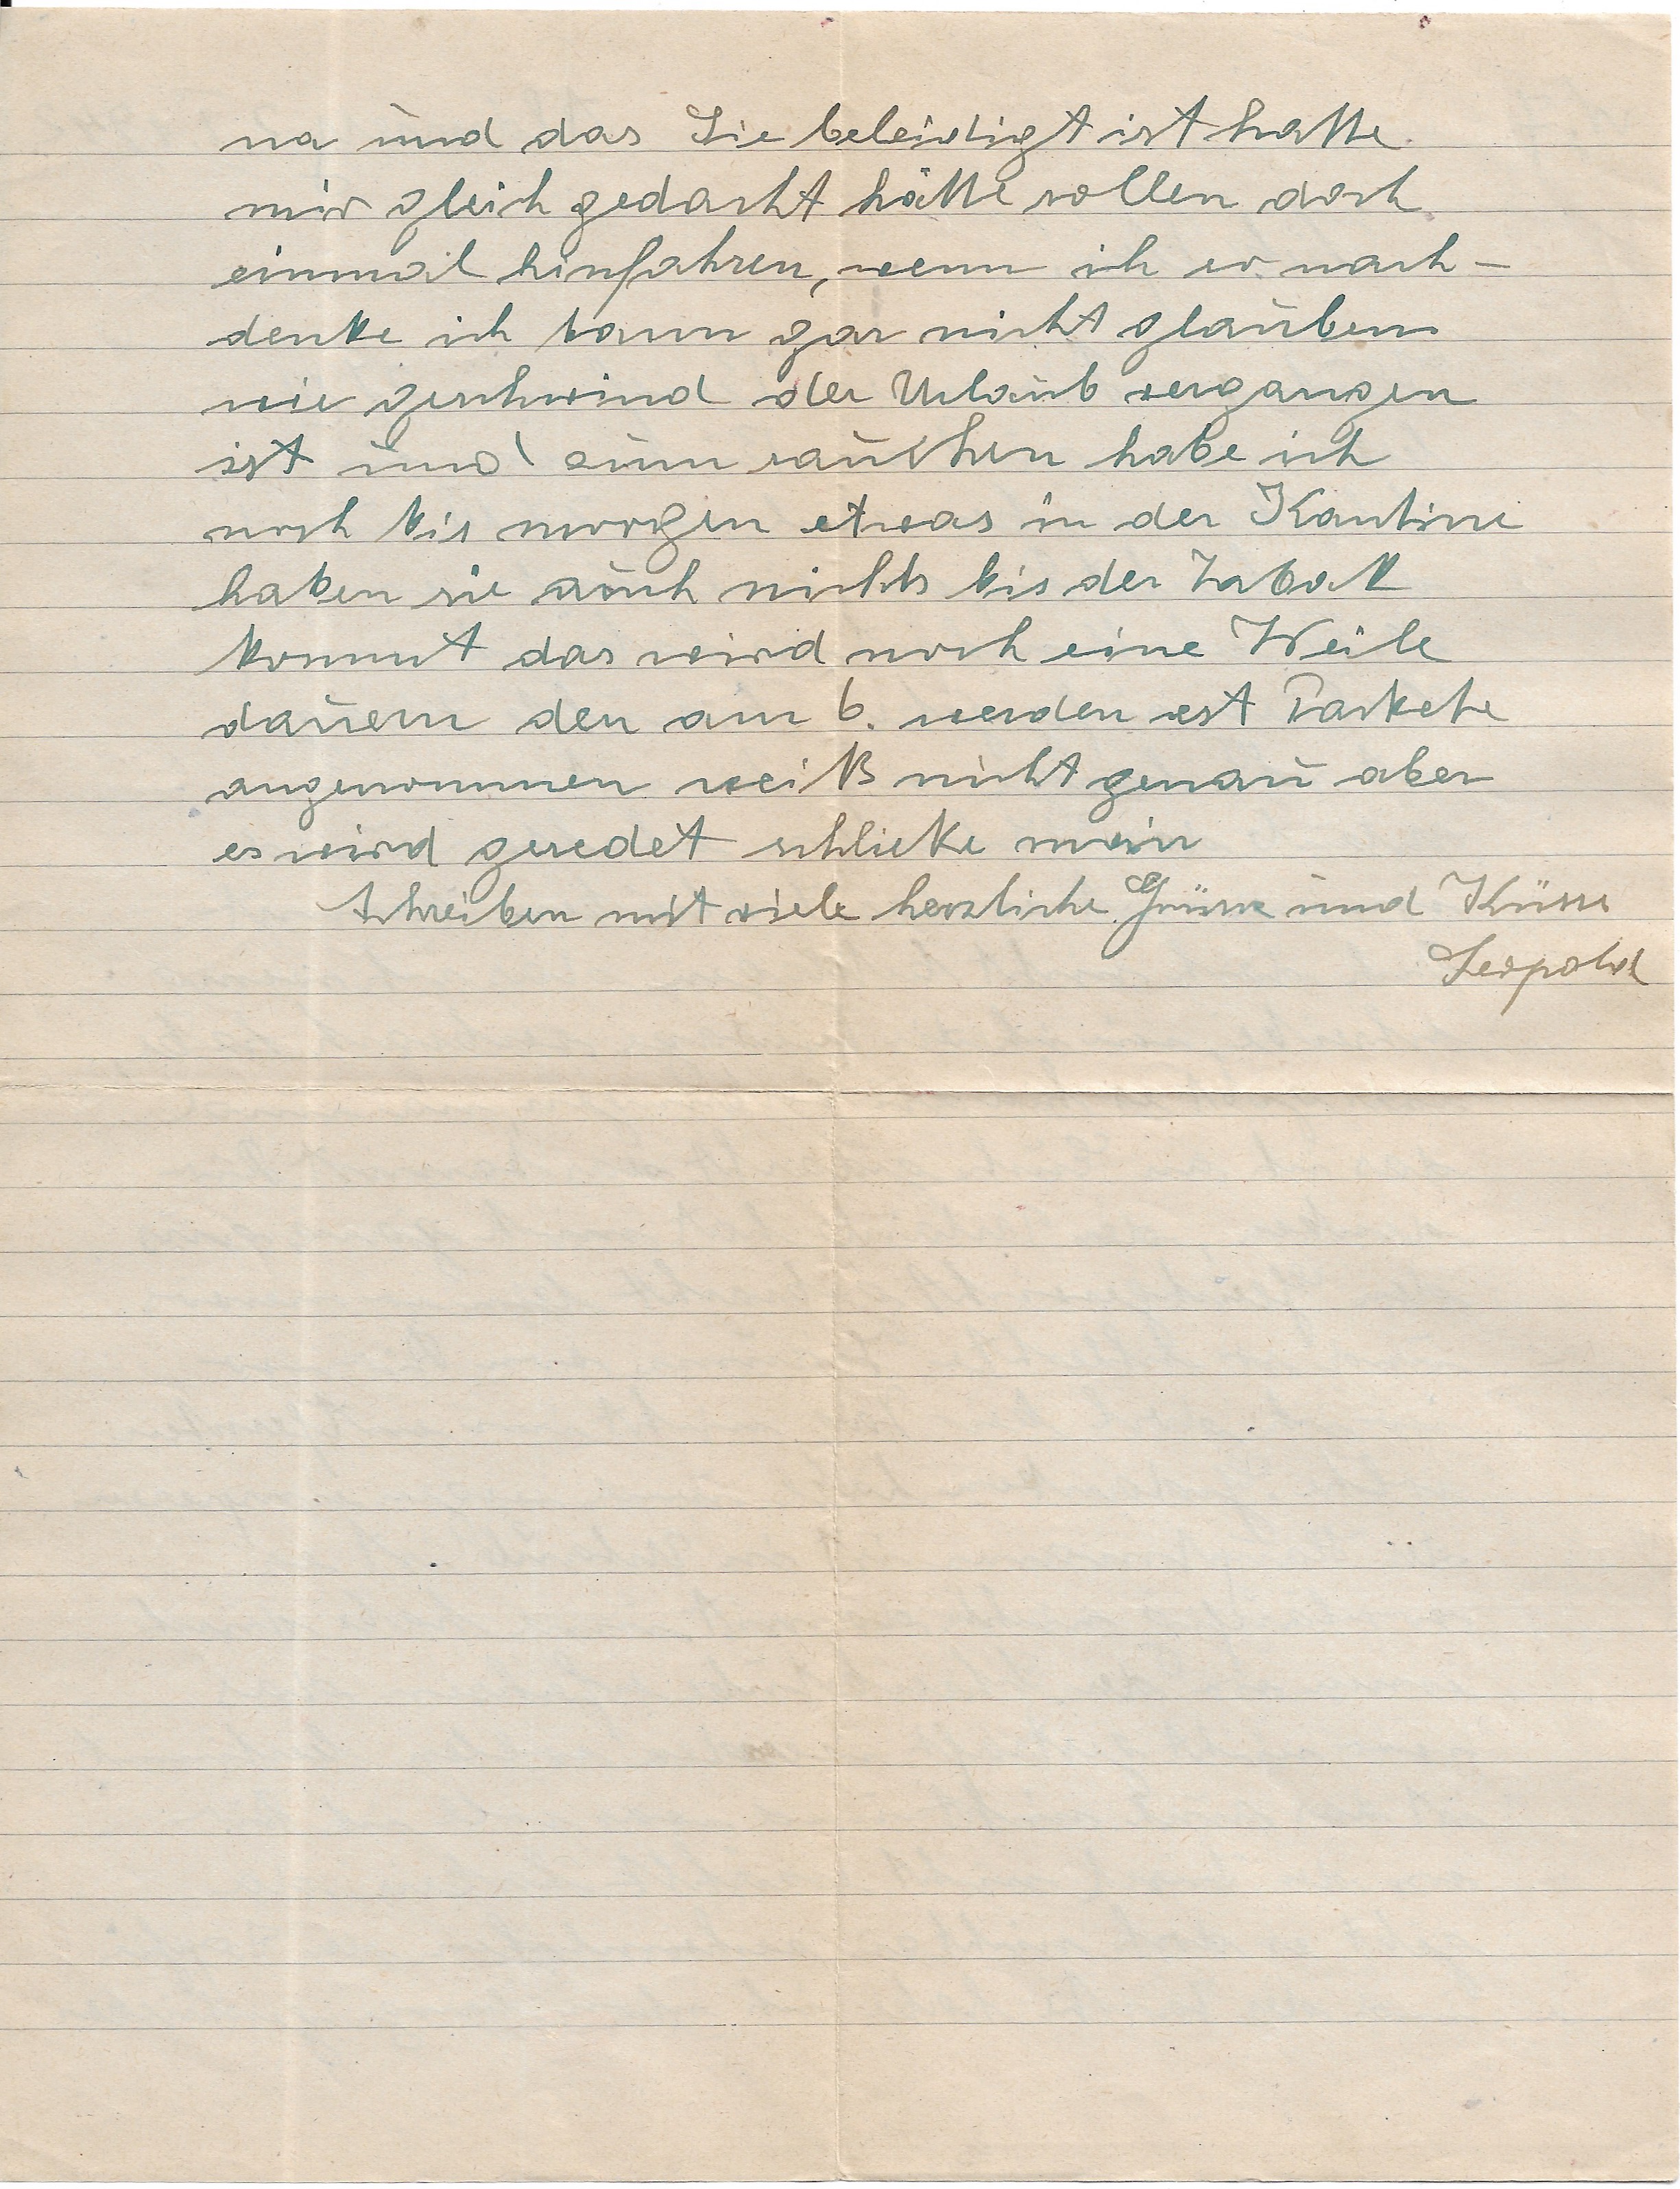 na und das Sie beleidigt ist hatte
mir gleich gedacht hätte sollen doch
einmal hinfahren, wenn ich so nach-
denke ich kann gar nicht glauben
wie geschwind der Urlaub vergangen
ist und zum rauchen habe ich
noch bis morgen etwas in der Kantine
haben sie auch nichts bis der Tabak
kommt das wird noch eine Weile
dauern den am 6. werden est Packete
angenommen weiß nicht genau aber
es wird geredet schließe mein
Schreiben mit viele herzliche Grüsse und Küsse
Leopold